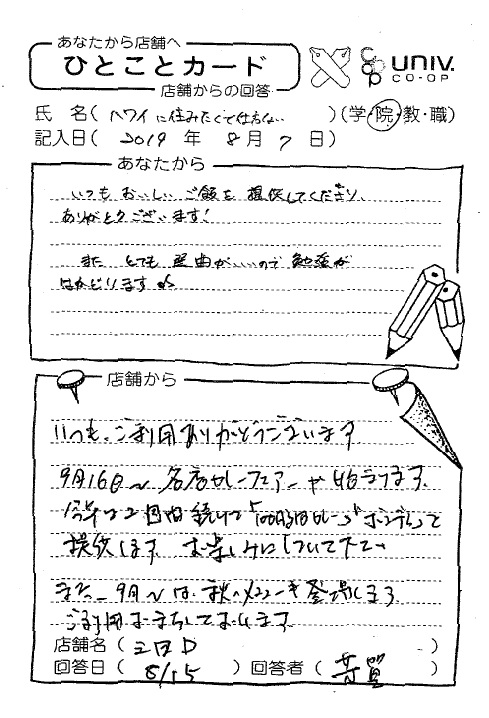 あなたから店舗へ
ひとことカード
店舗からの回答
UNIV.
CO-OP
氏 名( ハワイに住みたくて仕方ない )(学・院・教・職)
記入日( 2019 年 8月 7 日)
あなたから
いつもおいしいご飯を提供してくださり、
ありがとうございます!
また とても 選曲がいいので 勉強が
はかどります
店舗から
いつも、ご利用ありがとうございます
9月16日〜 名店カレーフェアーが始まります。
今年は2週間続けて
提供します。お楽しみにしていて下さい
また、9月〜は、秋のメニューも登場します。
ご利用おまちしております。
店舗名( 三田D )
回答日( 8/15 )回答者( 芳賀 )